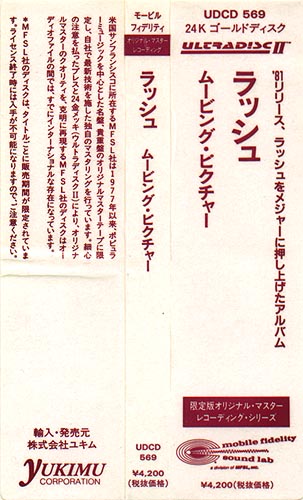 UDCD 569
24K ゴールドディスク
ULTRADISC II
'81リリース、ラッシュをメジャーに押し上げたアルバム
ラッシュ
ムービング・ピクチャー
限定版オリジナル・マスター
レコーディング・シリーズ
mobile fidelity
sound lab
a division of MFSL, inc.
¥4,200(税抜価格)
モービル
フィデリティ
オリジナル・マスター
レコーディング
ラッシュ ムービング・ピクチャー
UDCD
569
¥4,200
(税抜価格)
米国サンフランシスコに所在するMFSL社は1977年以来、ポピュラ
ーミュージックを中心とした名盤、貴重盤のオリジナルマスターテープに限
定し、自社で最新技術を施した独自のマスタリングを行っています。細心
の注意を払ったプレスと24金メッキ(ウルトラディスクII)により、オリジナ
ルマスターのクオリティを、克明に再現するMFSL社のディスクはオー
ディオファイルの間では、すでにインターナショナルな存在になっています。
*MFSL社のディスクは、タイトルごとに販売期間が限定されていま
す。ライセンス終了時には入手が不可能になりますので、ご注意ください。
輸入・発売元
株式会社ユキム
YUKIMU
CORPORATION